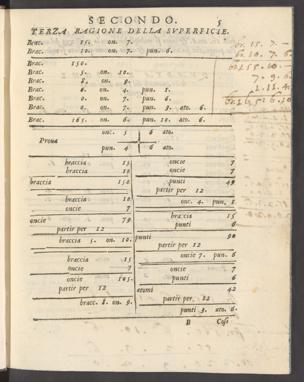 SECONDO. 5
TERZA RAGIONE DELLA SVPERFICIE.
Brac. 15. on. 7.
Brac. 10. on. 7. pun. 6.
Brac. 150.
Brac. 5. on. 10.
Brac. 8. on. 9.
Brac. 0. on. 4. pun. 1.
Brac. 0. on. 7. pun. 6.
Brac. 0. on. 0. pun. 3. ato. 6.
Brac. 165. on. 6. pun. 10. ato. 6.
onc. 5 6 ato.
Proua
pun. 4 6 ato.
braccia 15
braccia 10
braccia 150
braccia 10
oncie 7
oncie 70
partir per 12
braccia 5. on. 10.
braccia 15
oncie 7
oncie 105
partir per 12
bracc. 8. on. 9.
oncie 7
oncie 7
punti 49
partir per 12
onc. 4. pun. 1.
braccia 15
punti 6
punti 90
partir per 12
oncie 7. pun. 6
oncie 7
punti 6
atomi 42
partir per 12
punti 3. ato. 6.
B Cosi
br. 15. 7. —
br. 10. 7. 6.